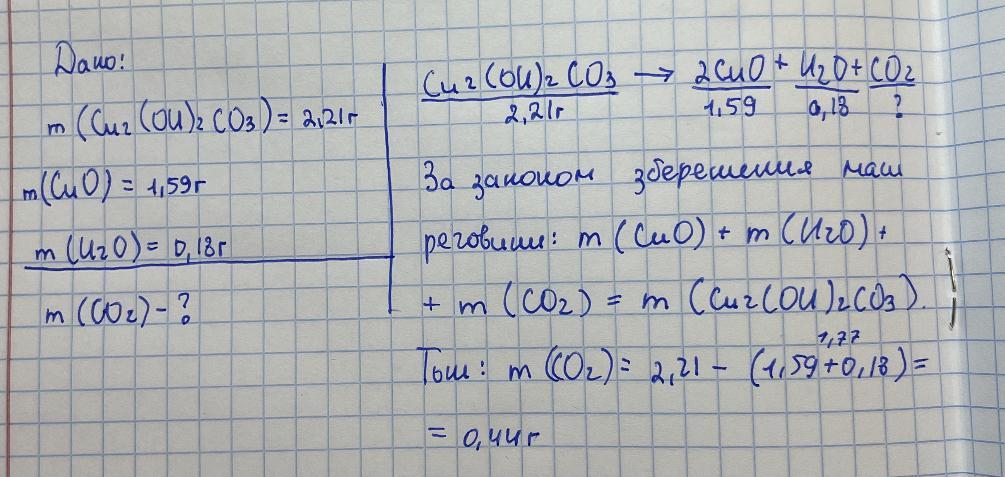 Дано:
m (Cu2(OH)2CO3) = 2,21г
m(CuO) = 1,59г
m(H2O) = 0,18г
m(CO2) - ?
Cu2(OH)2CO3 → 2CuO + H2O + CO2
2,21г 1,59 0,18 ?
За законом збереження маси
речовини: m(CuO) + m(H2O) +
+ m(CO2) = m(Cu2(OH)2CO3).
1,77
Тоді: m(CO2) = 2,21 - (1,59+0,18) =
= 0,44г